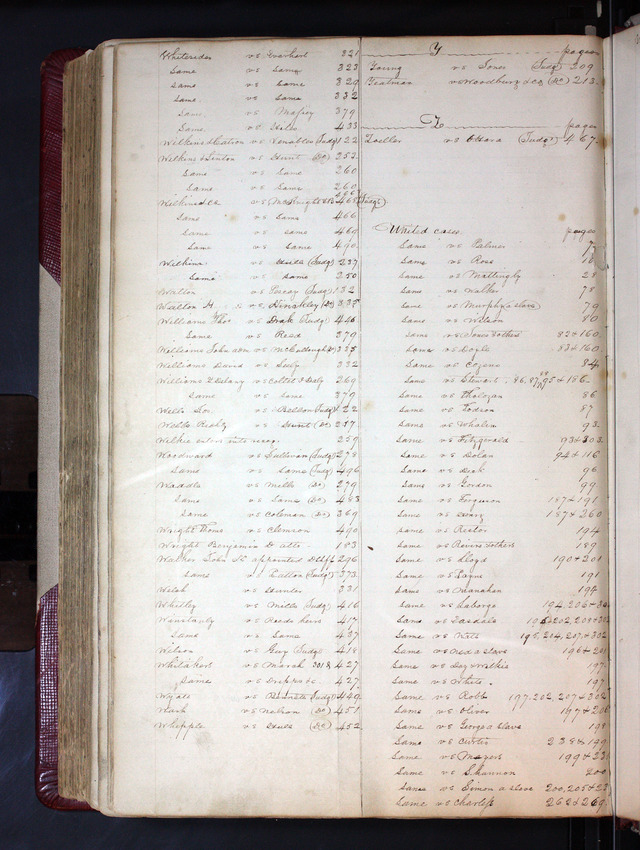 Whitesides vs Everhart 321
Same vs Same 323
Same vs Same 329
Same vs Same 332
Same vs 379
Same vs 433
Wilkins & Eaton vs Venables (Judgt) 122
Wilkins & Linton vs Hunt (Do) 253
Same vs Same 260
Same vs Same 260
Wilkins & Co vs McKnight 465 (Judgt)
Same vs Same 466
Same vs Same 469
Same vs Same 490
Wilkins vs (Judgt) 237
Same vs Same 250
Walton vs (Judgt) 132
Walton H vs Hinckley (Do) 338
Williams Thos vs (Judgt) 446
Same vs Read 379
Williams Johnson vs McCullough (Do) 355
Williams David vs 332
Williams & Delany vs & Daly 269
Same vs Same 379
Wells vs Beldon (Judgt) 222
Wells Richd vs Hunt (Do) 257
enters into recog. 259
Woodward vs Sullivan (Judgt) 278
Same vs Same (Judgt) 496
Waddle vs Mills (Do) 279
Same vs Same (Do) 463
Same vs Coleman (Do) 369
Wright Thomas vs Clemson 490
Wright Benjamin D atto 183
Walker John K appointed D Shff 296
Same vs (Judgt) 373
Welsh vs Hunter 331
Whitley vs Mills (Judgt) 416
Winstanly vs heirs 417
Same vs Same 437
Wilson vs Guy (Judgt) 418
Whitaker vs Marsh 427
Same vs 427
Wyatt vs (Judgt) 449
vs Watson (Do) 451
Whipple vs (Do) 452
Y pages
Young vs Jones (Judgt) 209
Yeatman vs Woodbury & Co (Do) 213
Z pages
Zoeller vs OHara (Judgt) 467
United cases pages
Same vs Palmer
Same vs Ross
Same vs Mattingly 28
Same vs Walker 78
Same vs Murphy (a slave) 79
Same vs Wilson 80
Same vs Jones & others 82 & 160
Same vs Doyle 83 & 160
Same vs Cozens 84
Same vs Stewart 86, 87, 95 & 186
Same vs Tholozan 86
Same vs Dodson 87
Same vs Whalen 93
Same vs Fitzgerald 93 & 303
Same vs Dolan 94 & 116
Same vs 96
Same vs Gordon 99
Same vs Ferguson 187 & 191
Same vs 187 & 260
Same vs Rector 194
Same vs & others 189
Same vs Lloyd 190 & 201
Same vs Payne 191
Same vs Manahan 194
Same vs Laborge 194, 206 &
Same vs Tasdale 195 & 202, 208 & 302
Same vs 195, 204, 207 & 302
Same vs Ned a slave 196 &
Same vs Day & Wilkie 197
Same vs White 197
Same vs Robb 197, 202, 207 & 302
Same vs Oliver 197 &
Same vs George a slave 198
Same vs Curtis 238 & 199
Same vs Mayers 199 &
Same vs Shannon 200
Same vs Simon a slave 200, 205 &
Same vs Charless 262 & 269